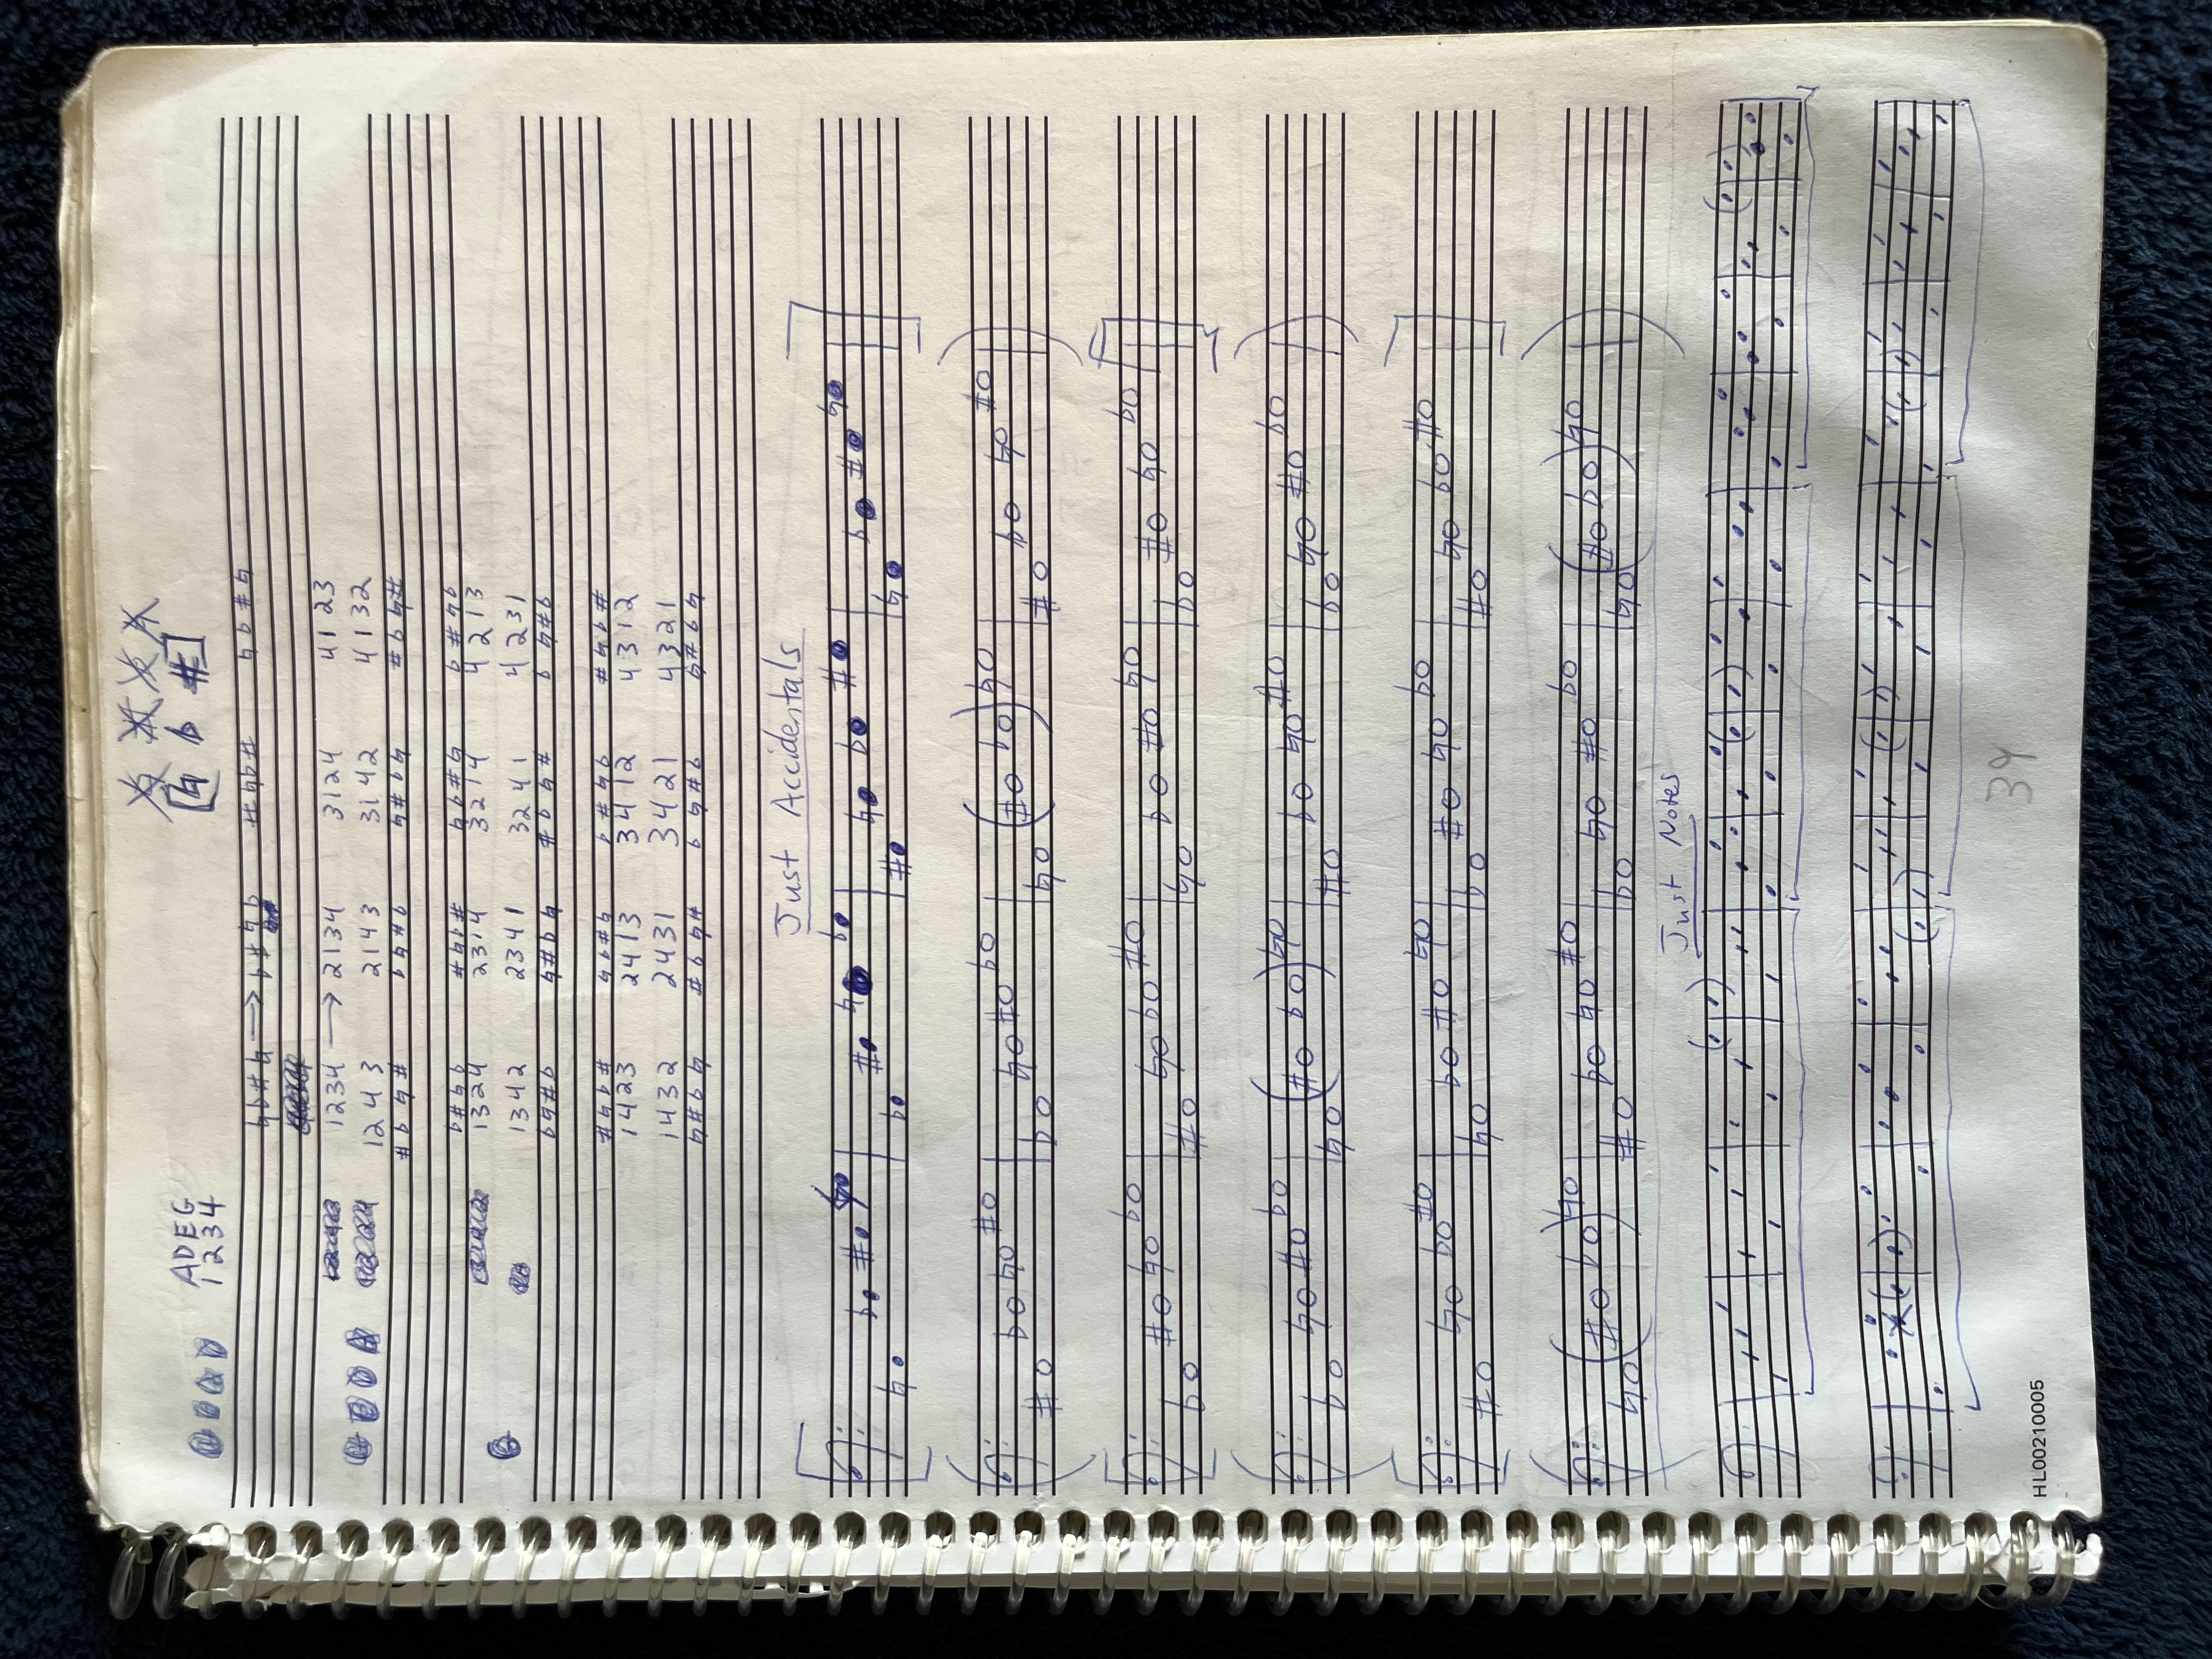 ADEG
1234
♮ ♭ ♯
♮♭♯♮ → ♭♯♮♭ ♯♮♭♯ ♮♭♯♮
1234 → 2134 3124 4123
1243 2143 3142 4132
♯♭♮♯ ♭♮♯♭ ♮♯♭♮ ♯♭♮♯
♭♯♮♭ ♯♮♭♯ ♮♭♯♮ ♭♯♮♭
1324 2314 3214 4213
1342 2341 3241 4231
♭♮♯♭ ♮♯♭♮ ♯♭♮♯ ♭♮♯♭
♯♮♭♯ ♮♭♯♮ ♭♯♮♭ ♯♮♭♯
1423 2413 3412 4312
1432 2431 3421 4321
♮♯♭♮ ♯♭♮♯ ♭♮♯♭ ♮♯♭♮
Just Accidentals
♮ ♭ ♯ ♮ ♭ ♯ ♮ ♭ ♯ ♮ ♭ ♯ ♮ ♭ ♯ ♮
♯ ♭ ♮ ♯ ♭ ♮ ♯ ♭ ♮ (♯ ♭) ♮ ♯ ♭ ♮ ♯
♭ ♯ ♮ ♭ ♯ ♮ ♭ ♯ ♮ ♭ ♯ ♮ ♭ ♯ ♮ ♭
♭ ♮ ♯ ♭ ♮ (♯ ♭) ♮ ♯ ♭ ♮ ♯ ♭ ♮ ♯ ♭
♯ ♮ ♭ ♯ ♮ ♭ ♯ ♮ ♭ ♯ ♮ ♭ ♯ ♮ ♭ ♯
♮ (♯ ♭) ♮ ♯ ♭ ♮ ♯ ♭ ♮ ♯ ♭ ♮ (♯ ♭) ♮
Just Notes
39
HL00210005